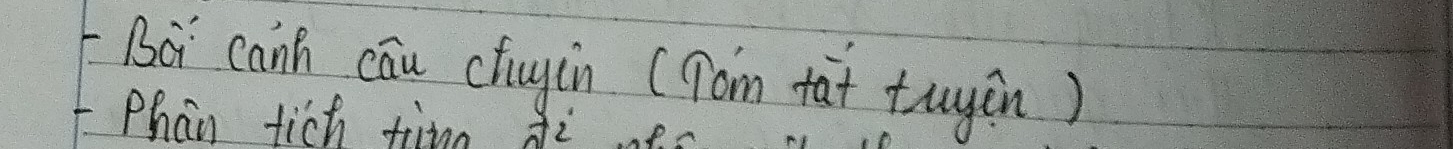 - Bối cảnh câu chuyện (Tóm tắt truyện)
- Phân tích từng